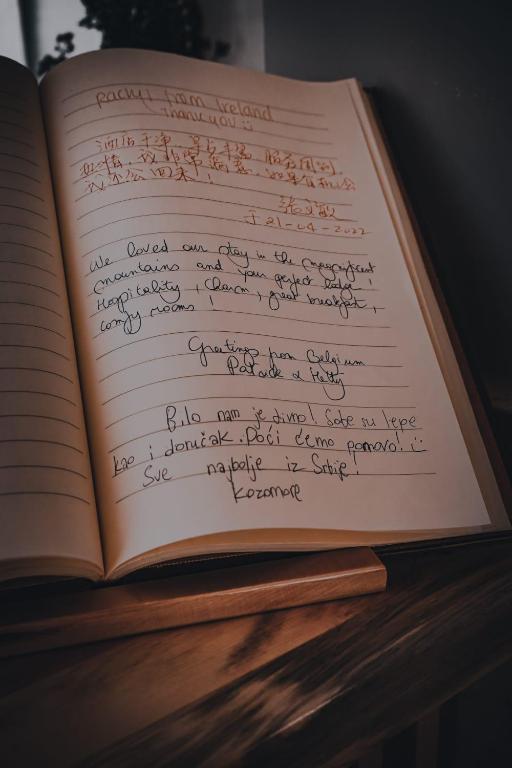 from Ireland
Thank you
酒店干净、早餐丰富、服务周到、
热情，我非常满意，如果有机会
我还会回来！
张文敏
于21-04-2022
We loved our stay in the magnificent
mountains and your perfect lodge!
Hospitality, charm, great breakfast,
comfy rooms!
Greetings from Belgium
Patrick &
Bilo nam je divno! Sobe su lepe
kao i doručak. Doći ćemo ponovo! :)
Sve najbolje iz Srbije!